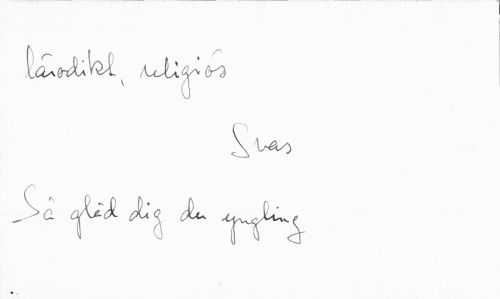 lärodikt, religiös
Svas
Så gläd dig du yngling